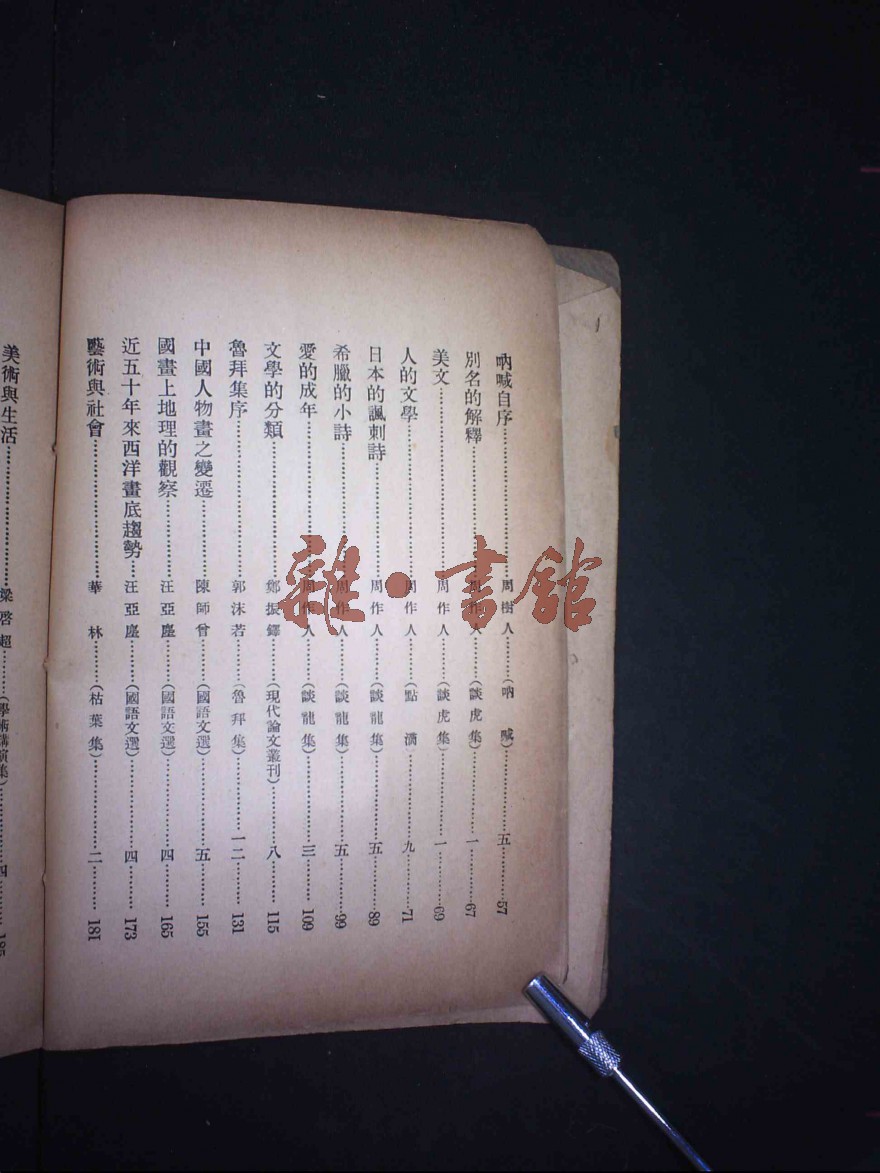 吶喊自序……周樹人……(吶喊)……五……57
別名的解釋……周作人……(談虎集)……一……67
美文……周作人……(談虎集)……一……69
人的文學……周作人……(點滴)……九……71
日本的諷刺詩……周作人……(談龍集)……五……89
希臘的小詩……周作人……(談龍集)……五……99
愛的成年……周作人……(談龍集)……三……109
文學的分類……鄭振鐸……(現代論文叢刊)……八……115
魯拜集序……郭沫若……(魯拜集)……一二……131
中國人物畫之變遷……陳師曾……(國語文選)……五……155
國畫上地理的觀察……汪亞塵……(國語文選)……四……165
近五十年來西洋畫底趨勢……汪亞塵……(國語文選)……四……173
藝術與社會……華林……(枯葉集)……二……181
美術與生活……梁啓超……(學術講演集)……四……185
雜·書館